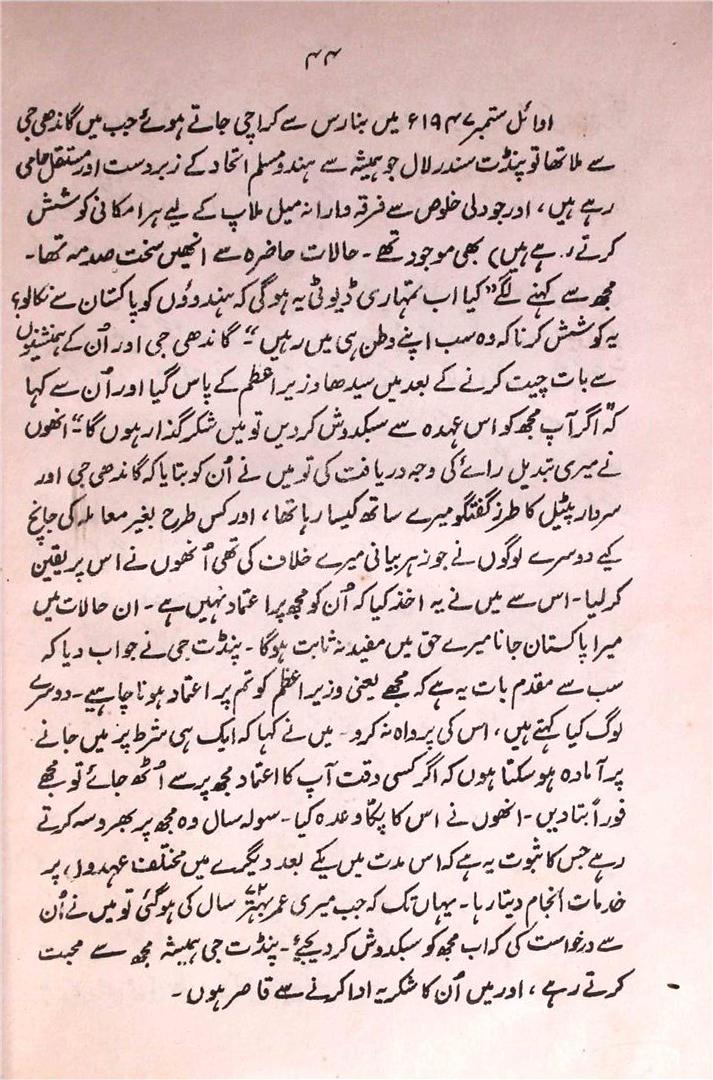 ۴۴
اوائل ستمبر ۱۹۴۷ء میں بنارس سے کراچی جاتے ہوئے جب میں گاندھی جی
سے ملا تھا تو پنڈت سندر لال جو ہمیشہ سے ہندو مسلم اتحاد کے زبردست اور مستقل حامی
رہے ہیں، اور جو دلی خلوص سے فرقہ وارانہ میل ملاپ کے لیے ہر امکانی کوشش
کرتے رہے ہیں) بھی موجود تھے۔ حالات حاضرہ سے انھیں سخت صدمہ تھا۔
مجھ سے کہنے لگے "کیا اب تمہاری ڈیوٹی یہ ہوگی کہ ہندوؤں کو پاکستان سے نکالو؟
یہ کوشش کرنا کہ وہ سب اپنے وطن ہی میں رہیں"۔ گاندھی جی اور اُن کے ہمنشینوں
سے بات چیت کرنے کے بعد میں سیدھا وزیر اعظم کے پاس گیا اور اُن سے کہا
کہ "اگر آپ مجھ کو اس عہدہ سے سبکدوش کر دیں تو میں شکر گذار ہوں گا"۔ انھوں
نے میری تبدیل رائے کی وجہ دریافت کی تو میں نے اُن کو بتایا کہ گاندھی جی اور
سردار پٹیل کا طرز گفتگو میرے ساتھ کیسا رہا تھا، اور کس طرح بغیر معاملہ کی جانچ
کیے دوسرے لوگوں نے جو زہر بیانی میرے خلاف کی تھی اُنھوں نے اس پر یقین
کر لیا۔ اس سے میں نے یہ اخذ کیا کہ اُن کو مجھ پر اعتماد نہیں ہے۔ ان حالات میں
میرا پاکستان جانا میرے حق میں مفید نہ ثابت ہوگا۔ پنڈت جی نے جواب دیا کہ
سب سے مقدم بات یہ ہے کہ مجھے یعنی وزیر اعظم کو تم پر اعتماد ہونا چاہیے۔ دوسرے
لوگ کیا کہتے ہیں، اس کی پرواہ نہ کرو۔ میں نے کہا کہ ایک ہی شرط پر میں جانے
پر آمادہ ہو سکتا ہوں کہ اگر کسی وقت آپ کا اعتماد مجھ پر سے اُٹھ جائے تو مجھے
فوراً بتا دیں۔ انھوں نے اس کا پکّا وعدہ کیا۔ سولہ سال وہ مجھ پر بھروسہ کرتے
رہے جس کا ثبوت یہ ہے کہ اس مدت میں یکے بعد دیگرے میں مختلف عہدوں پر
خدمات انجام دیتا رہا۔ یہاں تک کہ جب میری عمر بہتّر ۷۲ سال کی ہو گئی تو میں نے اُن
سے درخواست کی کہ اب مجھ کو سبکدوش کر دیجئے۔ پنڈت جی ہمیشہ مجھ سے محبت
کرتے رہے، اور میں اُن کا شکریہ ادا کرنے سے قاصر ہوں۔